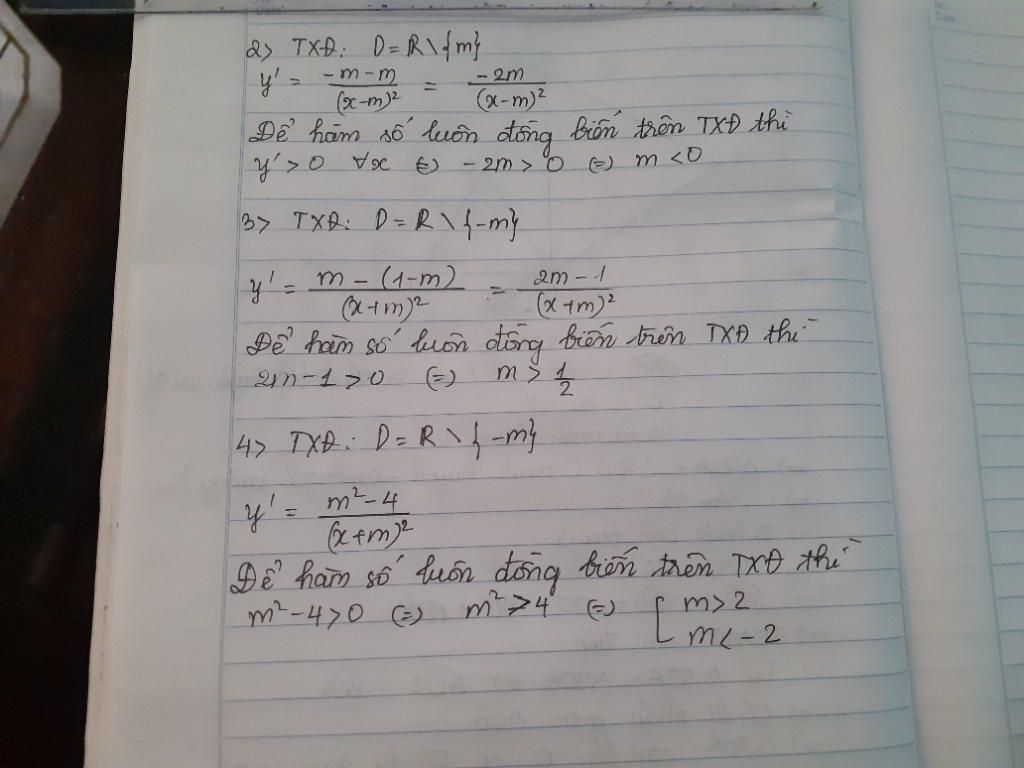 2> TXĐ: D = R \ {m}
y' = (-m - m)/(x-m)² = (-2m)/(x-m)²
Để hàm số luôn đồng biến trên TXĐ thì
y' > 0 ∀x (=) -2m > 0 (=) m < 0
3> TXĐ: D = R \ {-m}
y' = (m - (1-m))/(x+m)² = (2m - 1)/(x+m)²
Để hàm số luôn đồng biến trên TXĐ thì
2m - 1 > 0 (=) m > 1/2
4> TXĐ: D = R \ {-m}
y' = (m² - 4)/(x+m)²
Để hàm số luôn đồng biến trên TXĐ thì
m² - 4 > 0 (=) m² > 4 (=) [ m > 2
m < -2